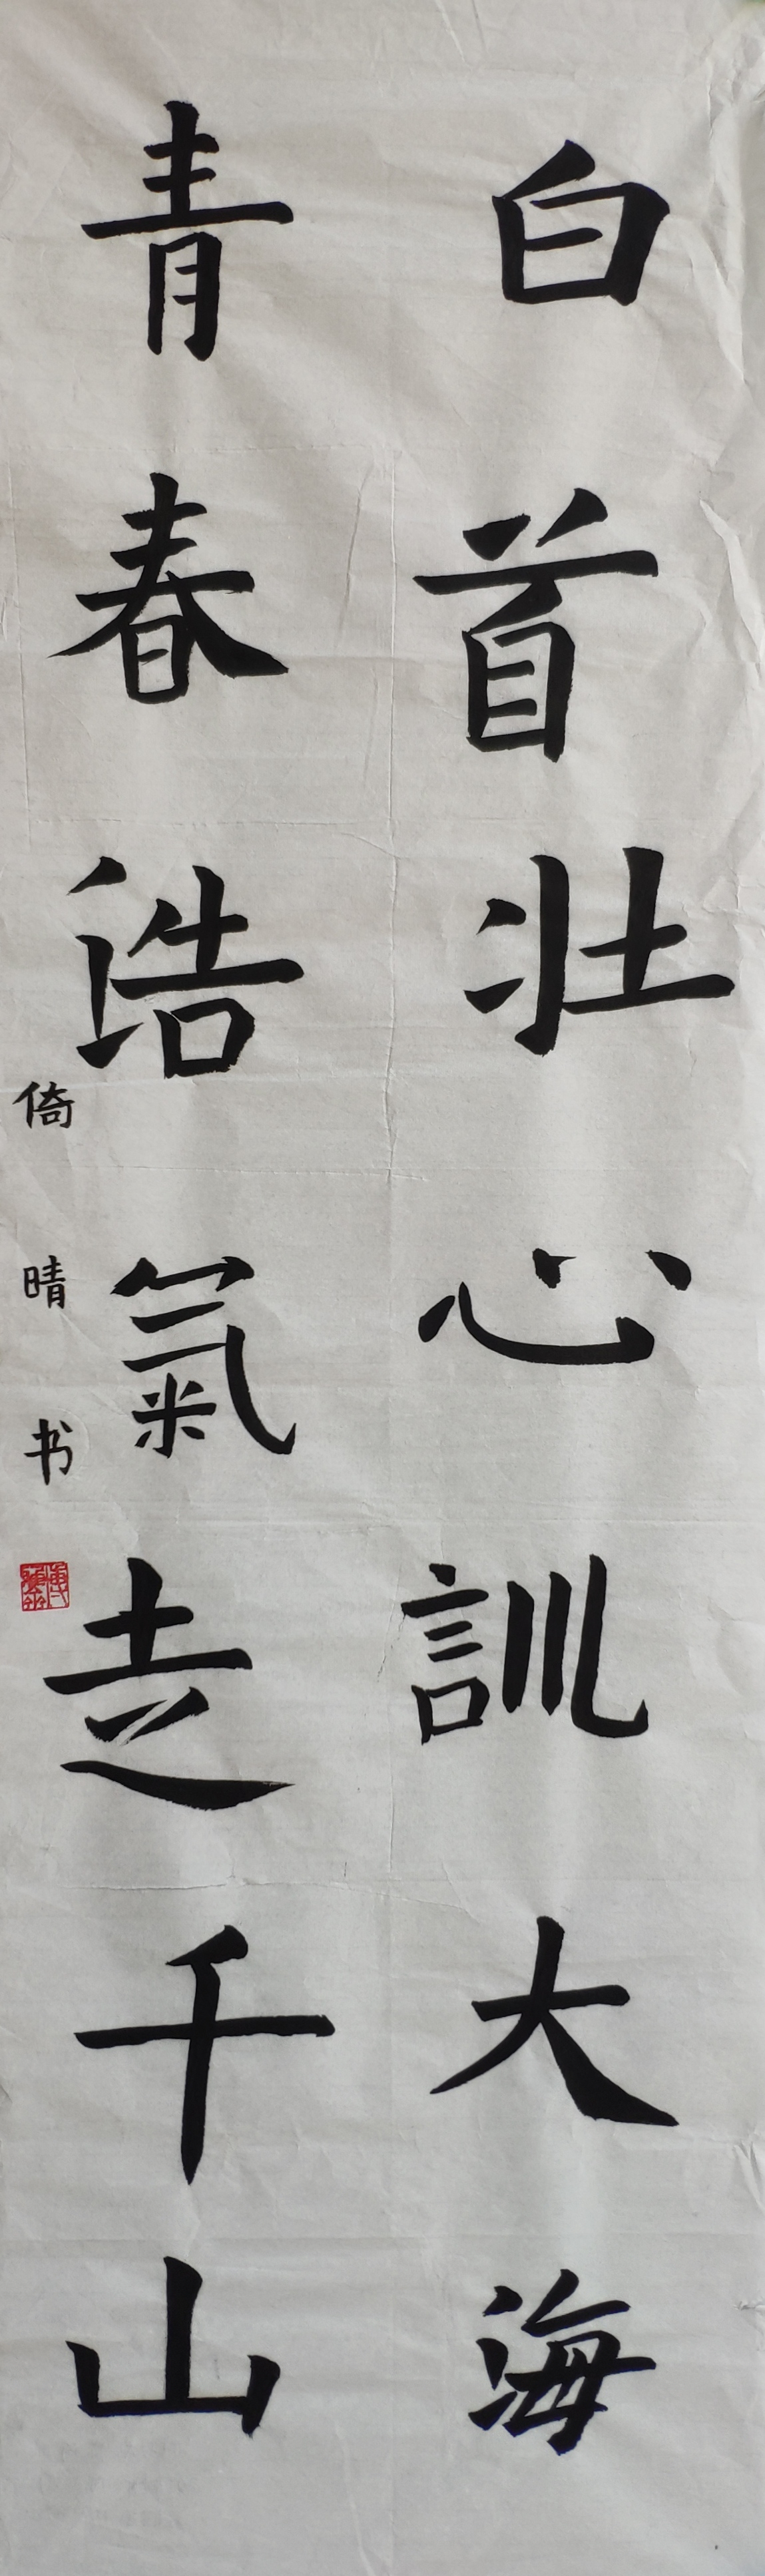 白首壯心訓大海
青春浩氣走千山
倚晴书